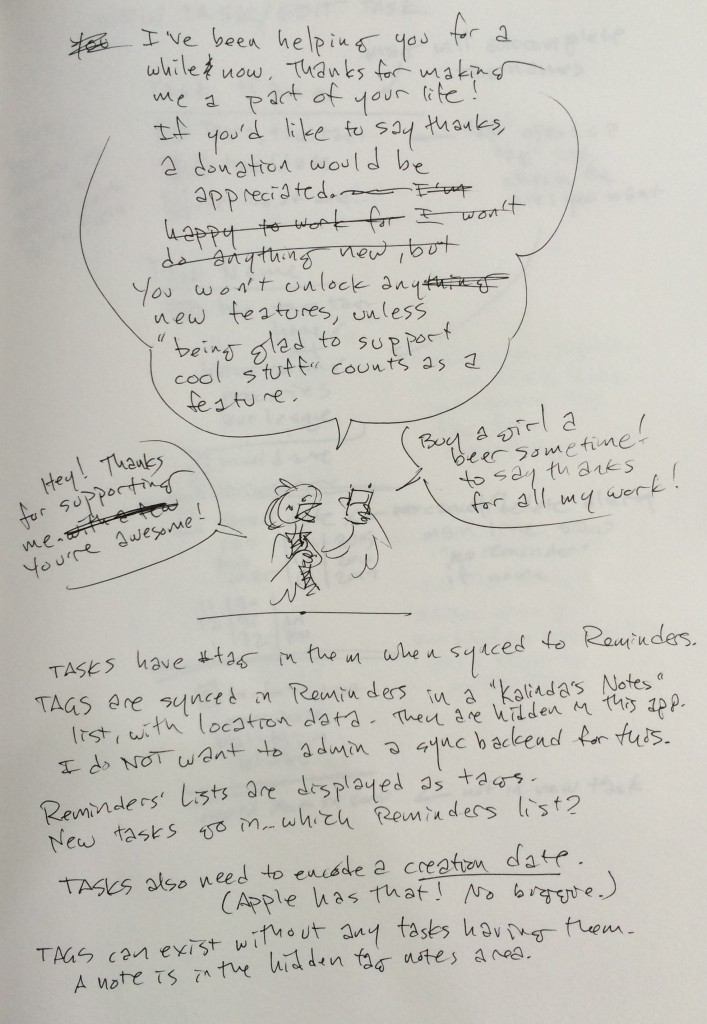 You I've been helping you for a
while & now. Thanks for making
me a part of your life!
If you'd like to say thanks,
a donation would be
appreciated. I'm
happy to work for I won't
do anything new, but
You won't unlock anything
new features, unless
"being glad to support
cool stuff" counts as a
feature.
Buy a girl a
beer sometime!
to say thanks
for all my work!
Hey! Thanks
for supporting
me. with a few
You're awesome!
TASKS have #tag in them when synced to Reminders.
TAGS are synced in Reminders in a "Kalinda's Notes"
list, with location data. Then are hidden in this app.
I do NOT want to admin a sync backend for this.
Reminders' Lists are displayed as tags.
New tasks go in... which Reminders list?
TASKS also need to encode a creation date.
(Apple has that! No biggie.)
TAGS can exist without any tasks having them.
A note is in the hidden tag notes area.